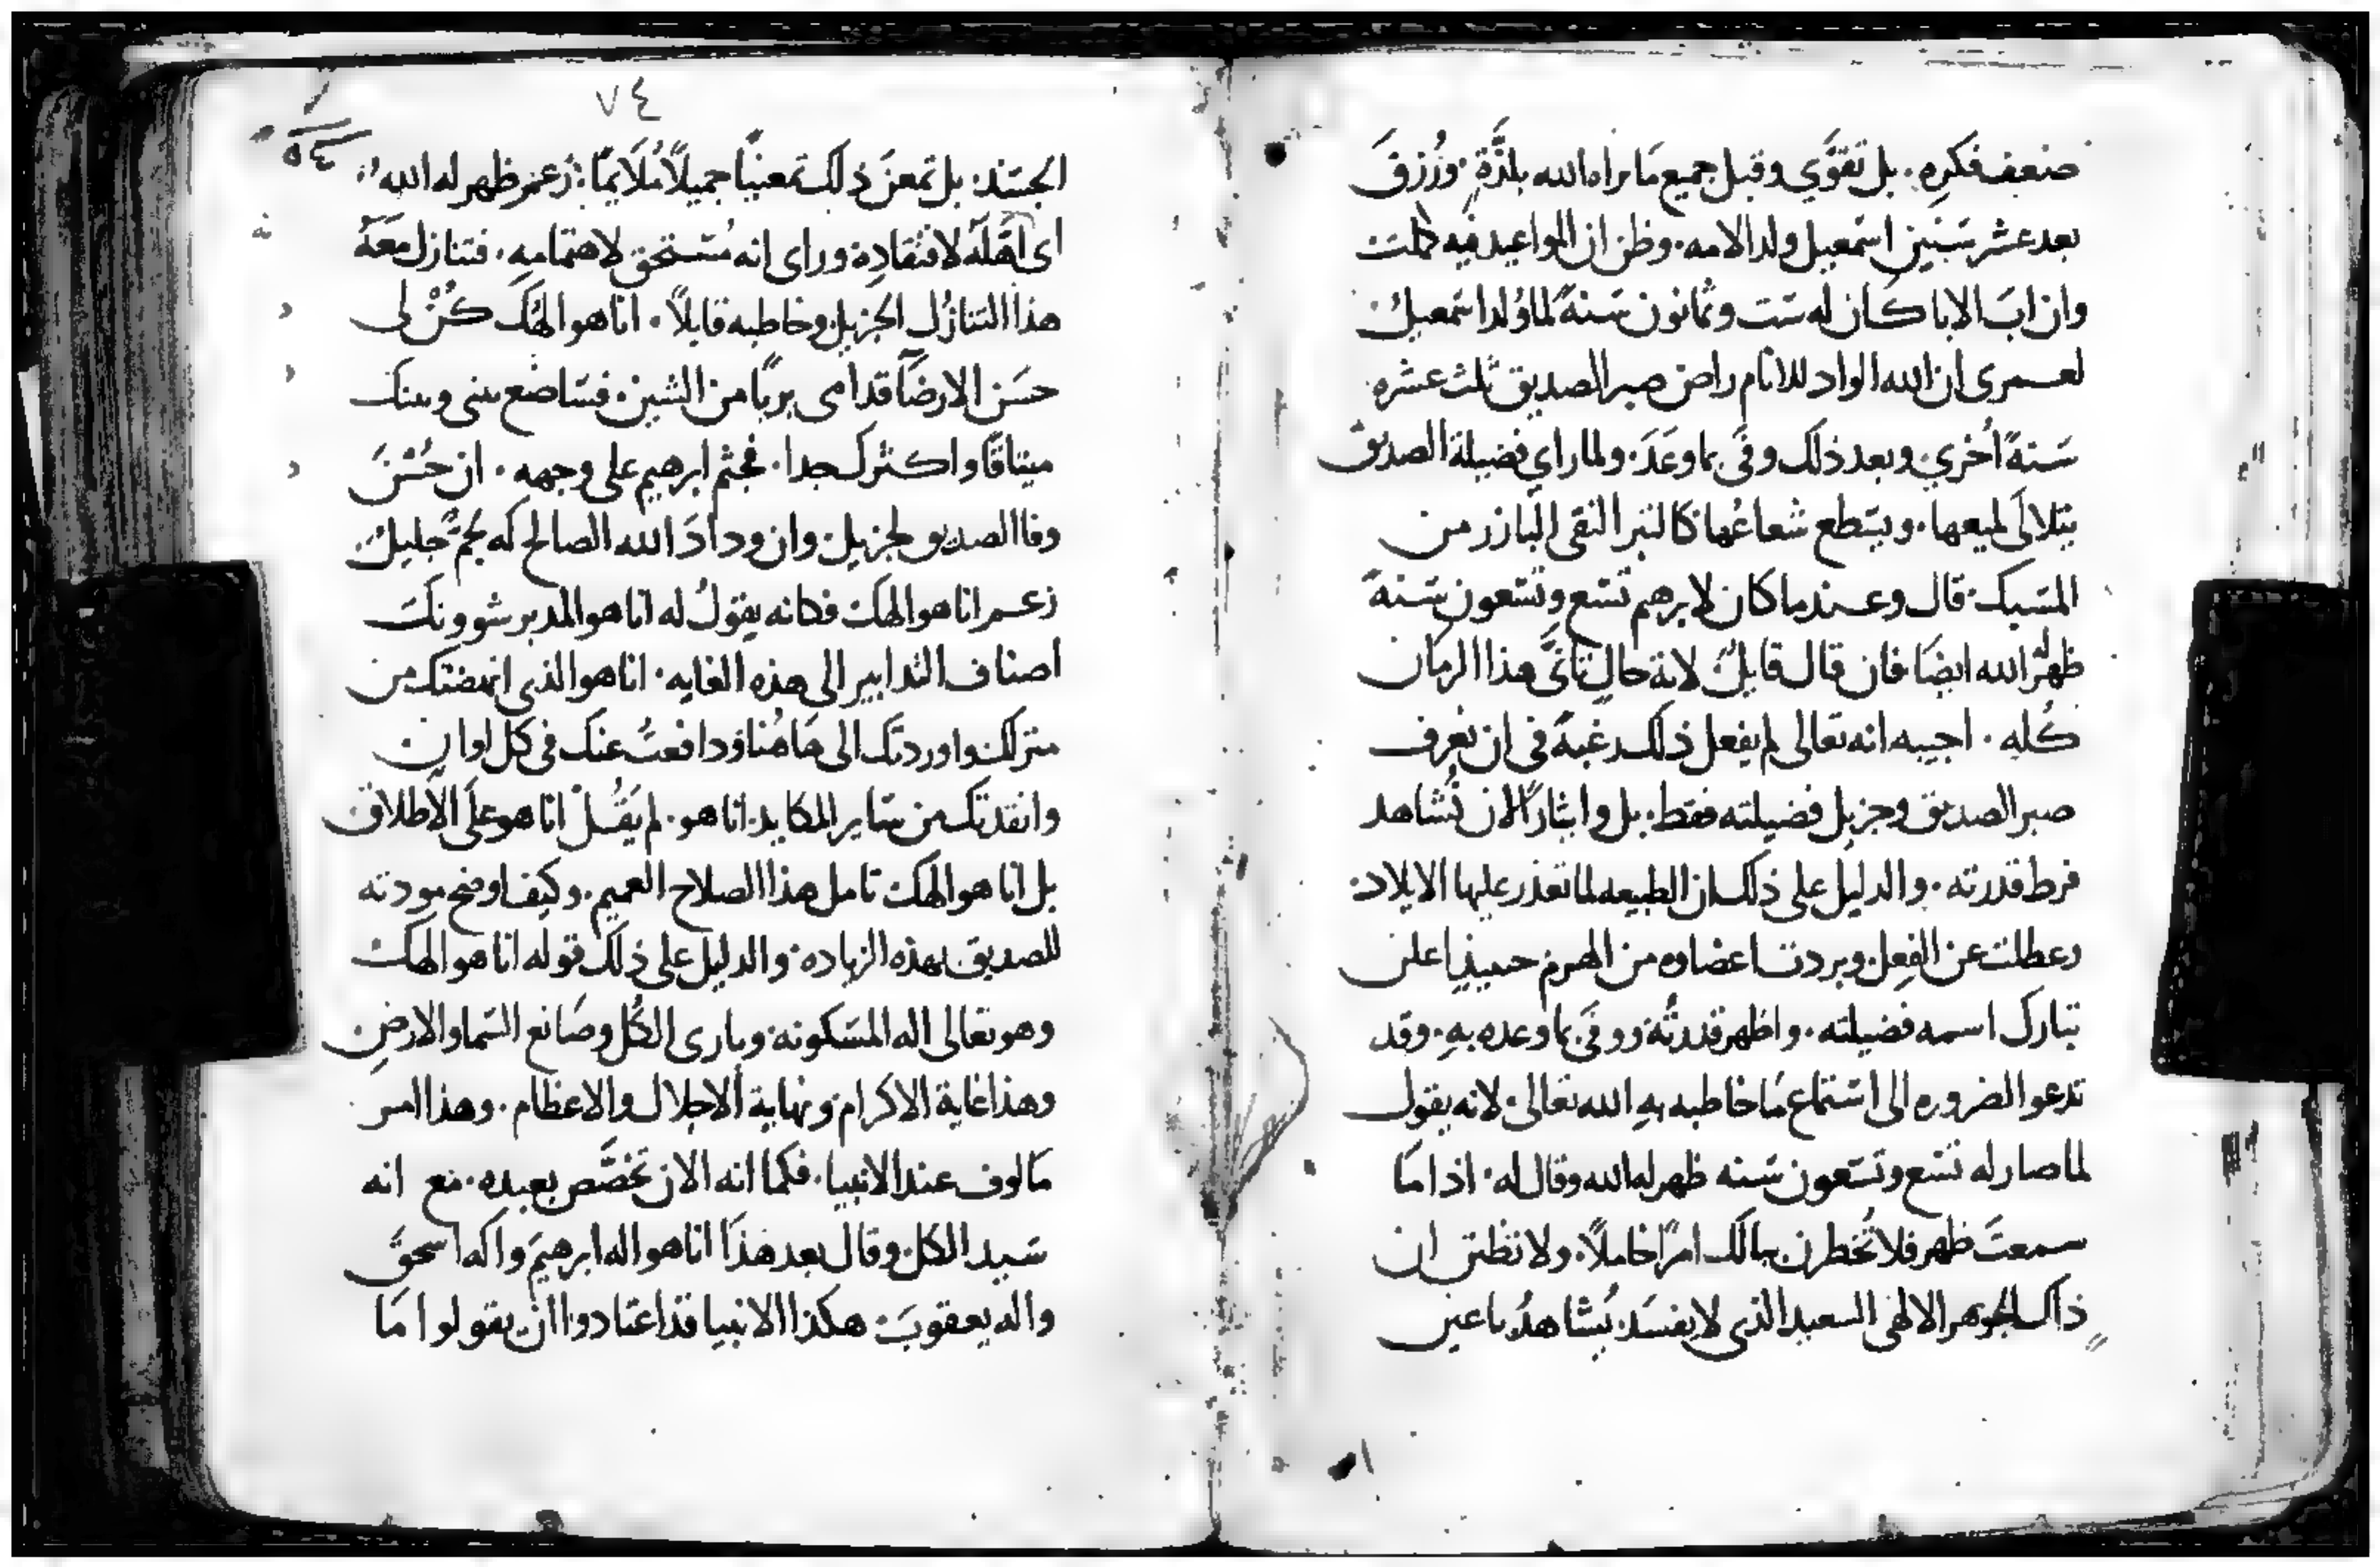 ضعف فكره. بل تقوَّي وقبل جميع مَا يراه الله بلذَّةٍ. ورُزقَ
بعد عشر سَنين اسمعيل ولد الامه. وظن ان المواعيد فيه كملت
وان ابَ الابا كان له سَت وثمانون سَنةً لما وُلد اسمعيلُ
لعمري ان الله الواد للانام راض صبر الصديق ثلث عشره
سَنةً اُخري وبعد ذلك وفَى بما وعَدَ. ولما راي فضيلة الصديق
يتلالَى لميعها. ويسَطع شعاعُها كالتبر النقى البَارز من
المسَبك. قال وعندما كان لابرهيم تسَع وتسَعون سَنةً
ظهر له الله ايضًا فان قال قايلٌ لاية حالٍ تانَّى هذا الزمَان
كُله. اجيبه انه تعالى لم يفعل ذلك رغبةً فى ان نعرف
صبر الصديق وجزيل فضيلته فقط. بل وايثارًا لان نُشاهد
فرط قدرته. والدليل على ذلك ان الطبيعه لما تعذر عليها الايلاد.
وعطلت عن الفعل. وبردت اعضاوه من الهرم حينيذٍ اعلن
تبارك اسمه فضيلته. واظهر قدرتُه ووفَى بما وعده بهِ. وقد
تدعو الضروره الى اسَتماع مَا خاطبه بهِ الله تعالى. لانه يقول
لما صار له تسَع وتسَعون سَنه ظهر له الله وقال له. اذا مَا
سمعتَ ظهر فلا تُخطرن ببالك امرًا خاملاً. ولا تظنن ان
ذاك الجوهر الالهى السعيد الذى لا يفسَد. يُشاهدُ باعين
٧٤
٥٤
الجسَد. بل تمعنَ ذلك تمعنيًا جميلاً مُلَايمًا. زعم ظهر له الله
اى اهَّله لافتقادِه وراى انه مُسَتحق لاهتمامهِ. فتنازل معَهُ
هذا التنازُل الجزيل. وخاطبه قايلاً. انا هو الهُك كُنْ لى
حسَن الارضَا قدامى بريًا من الشين. فسَاضع بينى وبينك
ميثاقًا واكثرك جدا. فجثم ابرهيم على وجهه. ان حُسْنَ
وفا الصديق لجزيل. وان ودادَ الله الصالح له لجمٌ جليلٌ.
زعم انا هو الهك فكانه يقولُ له انا هو المدبر شوونك
اصناف التدابير الى هذه الغايه. انا هو الذى انهضتك من
منزلك. واوردتك الى هَاهُنا ودافعتُ عنك فى كل اوان
وانقذتك من سَاير المكايد. انا هو. لم يَقُلْ انا هو علَى الاطلاق
بل انا هو الهك تامل هذا الصلاح العميم. وكيف اوضح مودته
للصديق بهذه الزياده. والدليل على ذلك قوله انا هو الهك
وهو تعالى اله المسَكونة. وبارى الكل وصَانع السَما والارضِ.
وهذا غاية الاكرام. ونهاية الاجلال والاعظام. وهذا امر
مَالوف عند الانبيا. فكما انه الان تخصَّص بعبده. مع انه
سَيد الكل. وقال بعد هذَا انا هو اله ابرهيمَ واله اسَحقَ
واله يعقوبَ. هكذا الانبيا قد اعتَادوا ان يقولوا مَا